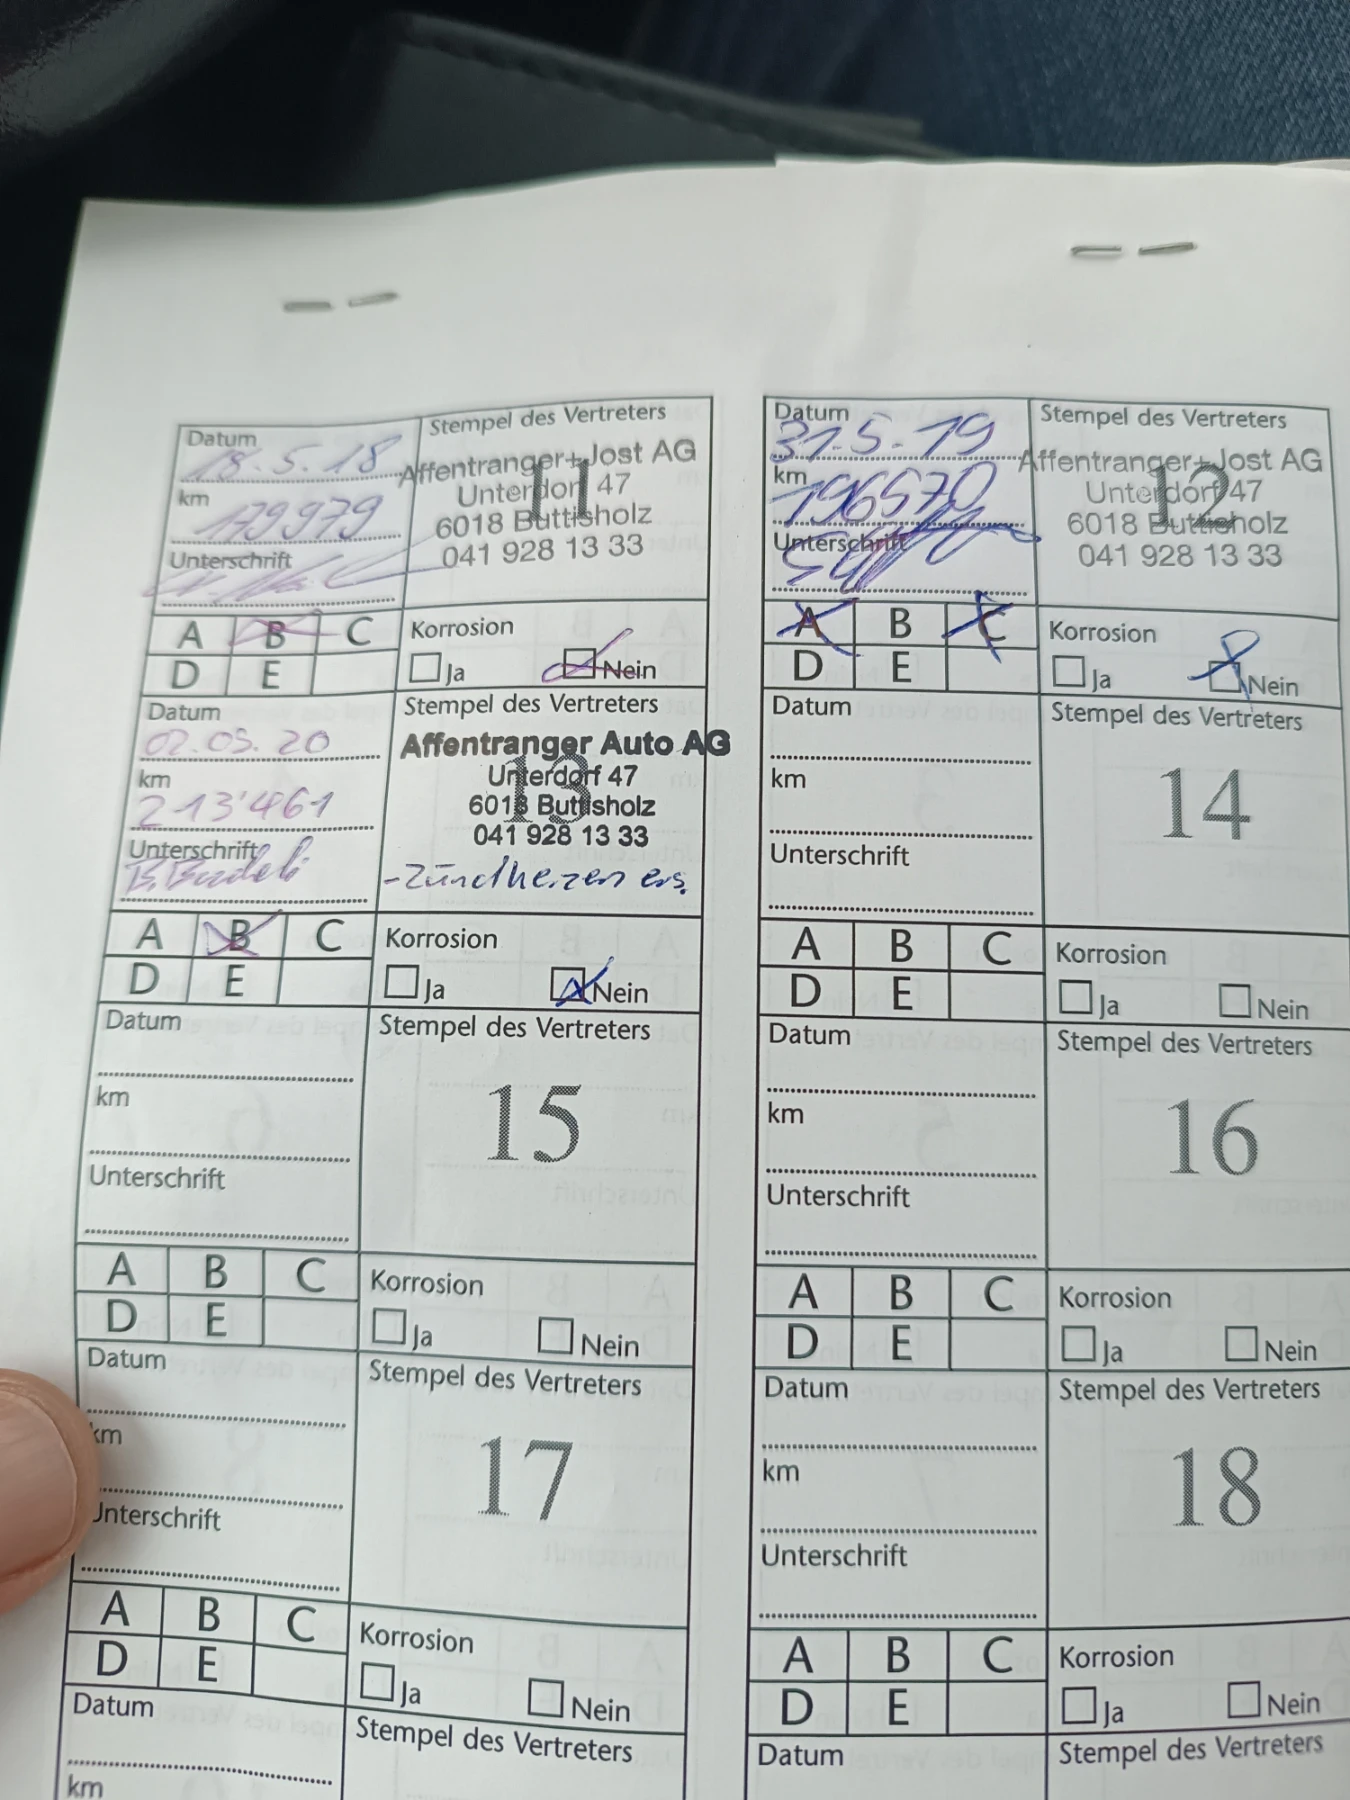 Datum
18.5.18
km
179979
Unterschrift
Stempel des Vertreters
11
Affentranger+Jost AG
Unterdorf 47
6018 Buttisholz
041 928 13 33
A B C
D E
Korrosion
Ja Nein
Datum
31.5.19
km
196570
Unterschrift
Stempel des Vertreters
12
Affentranger+Jost AG
Unterdorf 47
6018 Buttisholz
041 928 13 33
A B C
D E
Korrosion
Ja Nein
Datum
02.05.20
km
213'461
Unterschrift
Stempel des Vertreters
13
Affentranger Auto AG
Unterdorf 47
6018 Buttisholz
041 928 13 33
-Zündkerzen ers.
A B C
D E
Korrosion
Ja Nein
Datum
km
Unterschrift
Stempel des Vertreters
14
A B C
D E
Korrosion
Ja Nein
Datum
km
Unterschrift
Stempel des Vertreters
15
A B C
D E
Korrosion
Ja Nein
Datum
km
Unterschrift
Stempel des Vertreters
16
A B C
D E
Korrosion
Ja Nein
Datum
km
Unterschrift
Stempel des Vertreters
17
A B C
D E
Korrosion
Ja Nein
Datum
km
Unterschrift
Stempel des Vertreters
18
A B C
D E
Korrosion
Ja Nein
Datum
km
Stempel des Vertreters
Datum
Stempel des Vertreters